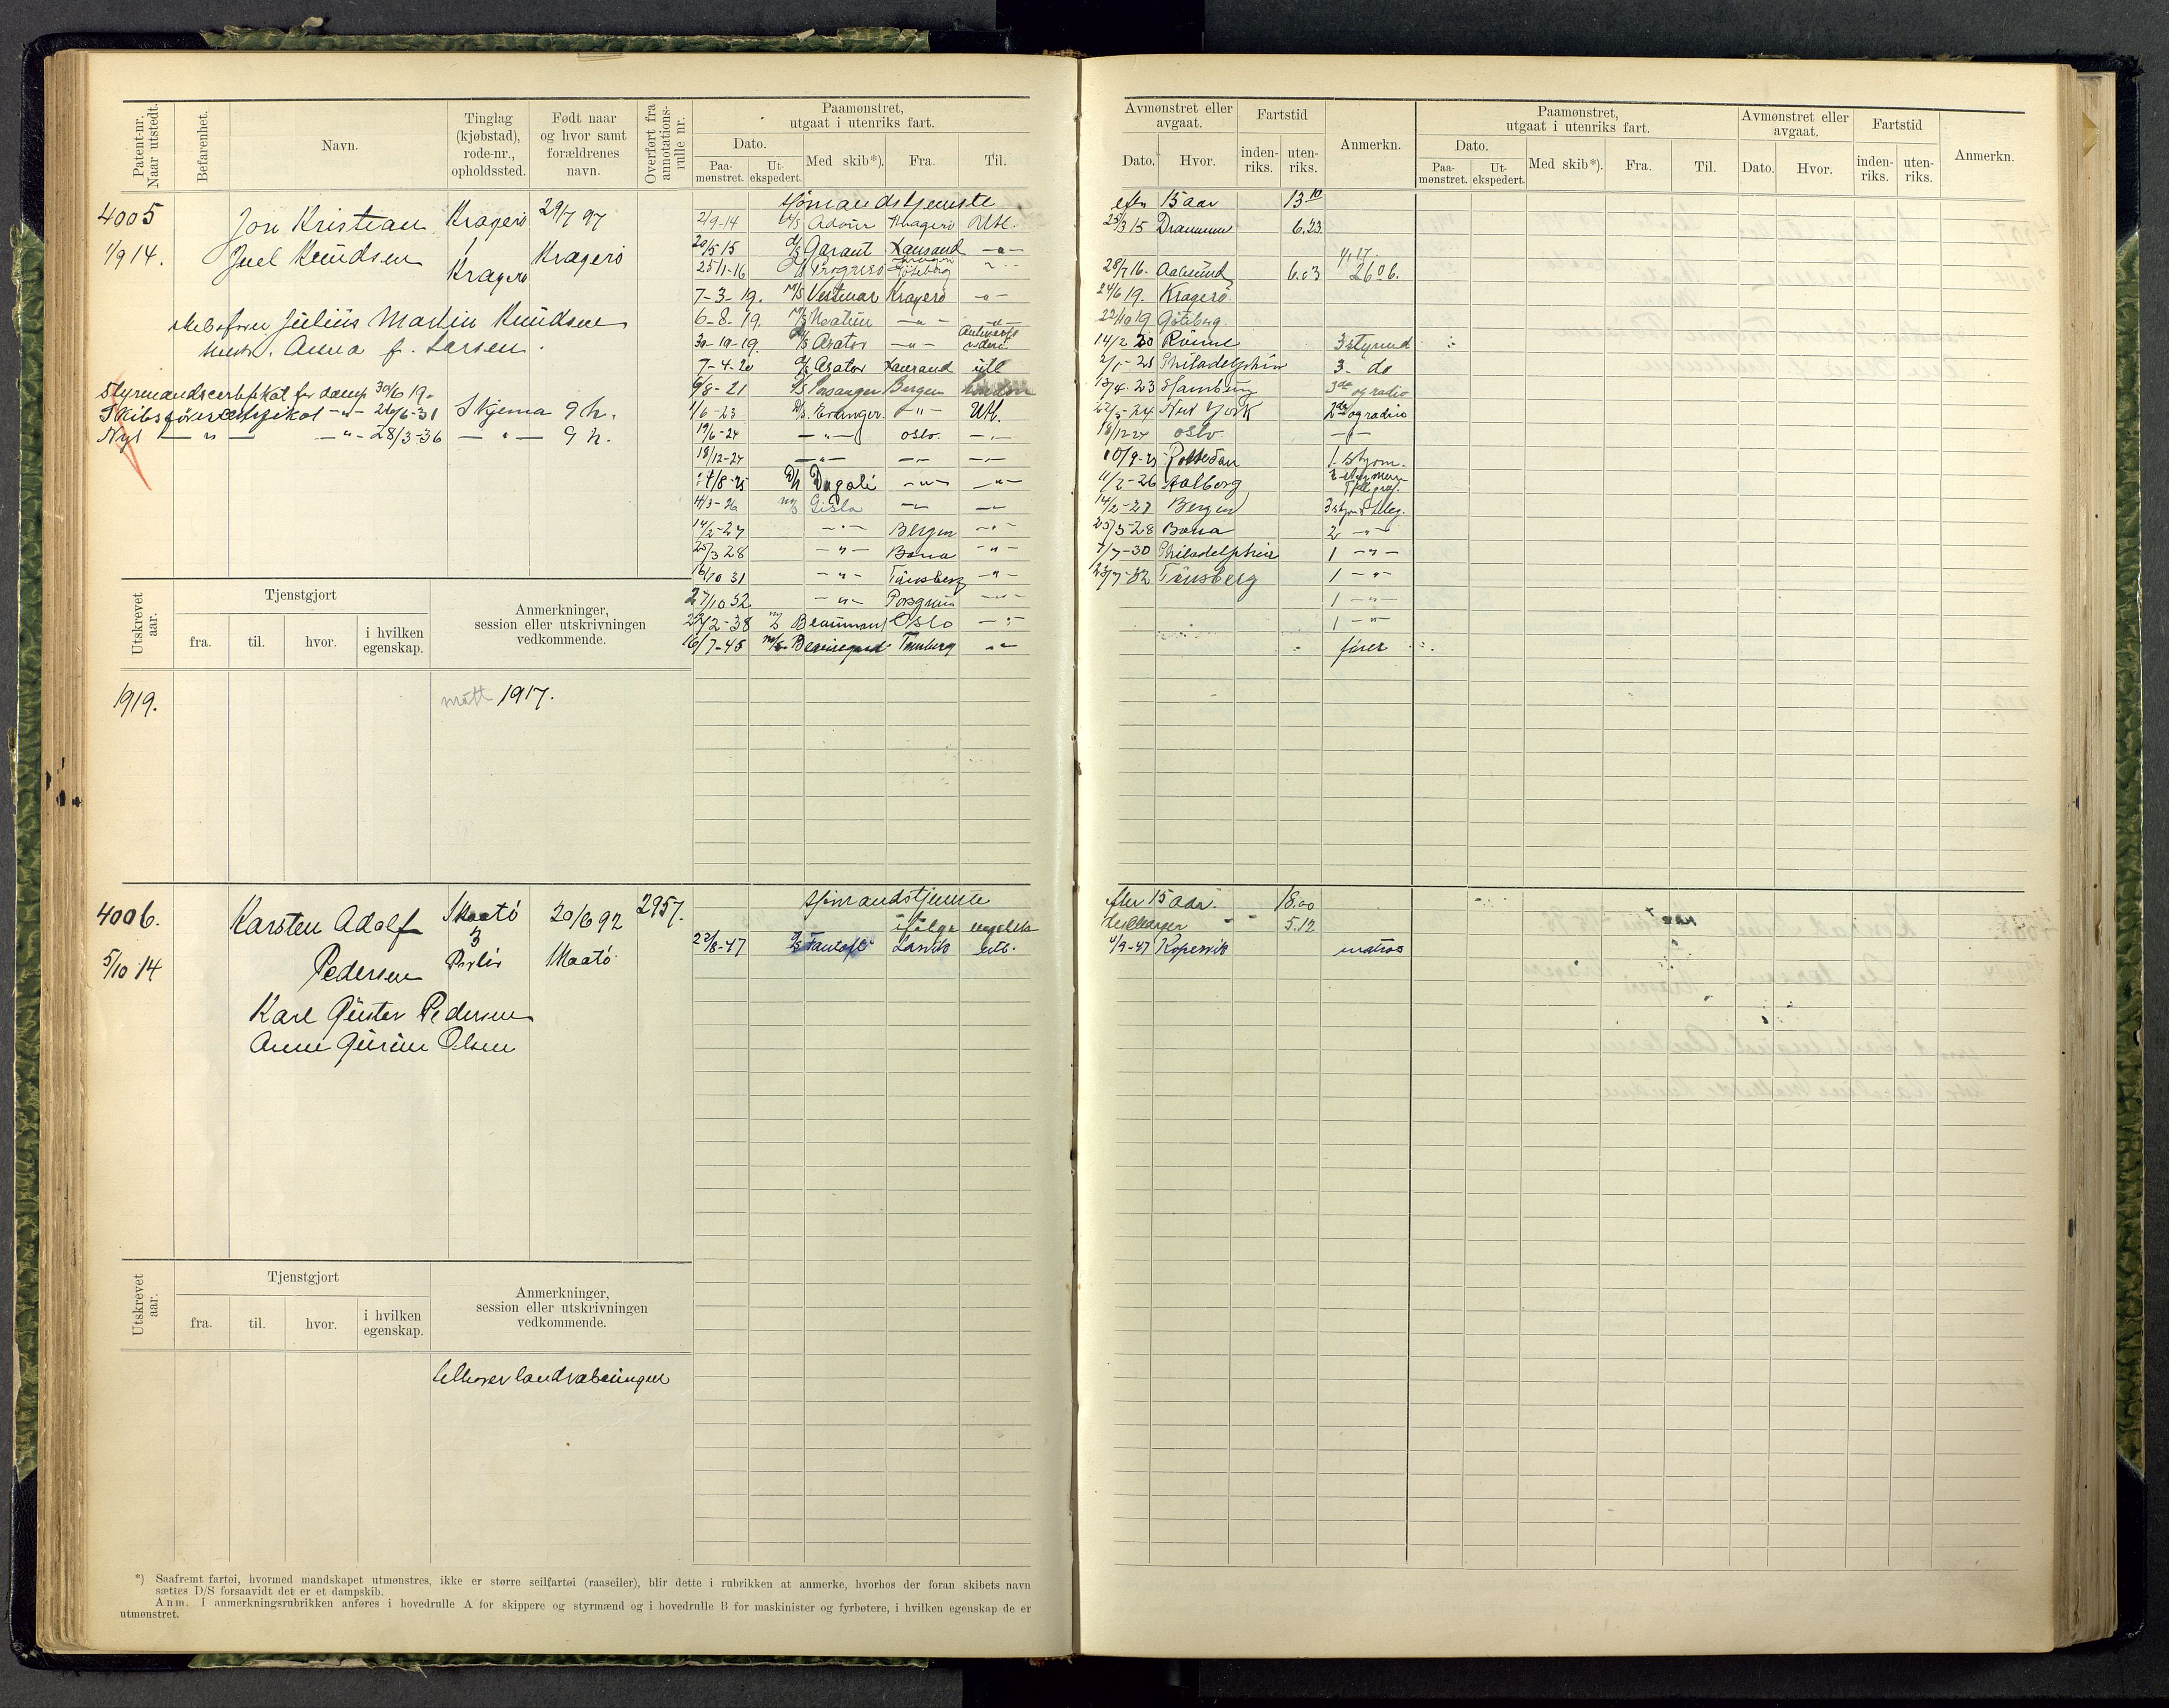 Patent-nr. Naar utstedt.
Befarenhet.
Navn.
Tinglag (kjøbstad), rode-nr., opholdssted.
Født naar og hvor samt forældrenes navn.
Overført fra annotations-rulle nr.
Paamønstret, utgaat i utenriks fart.
Dato.
Paa-mønstret.
Ut-ekspedert.
Med skib*).
Fra.
Til.
Avmønstret eller avgaat.
Dato.
Hvor.
Fartstid
inden-riks.
uten-riks.
Anmerkn.
Paamønstret, utgaat i utenriks fart.
Dato.
Paa-mønstret.
Ut-ekspedert.
Med skib*).
Fra.
Til.
Avmønstret eller avgaat.
Dato.
Hvor.
Fartstid
inden-riks.
uten-riks.
Anmerkn.
4005
1/9 14.
Jon Kristian
Juel Knudsen
Kragerø
1
Kragerø
29/7 97
Kragerø
skibsfører Julius Martin Knudsen
hustr. Anna f. Larsen.
Styrmandscertifikat for damp 30/6 19.
Skibsførercertifikat -"- 26/6-31 Skjema 9 h.
Nyt — " — -"- 28/3-36 — " — 9 h.
Sjømandstjeneste efter 15 aar 13 10
2/9-14 Kragerø Utl. 25/3 15 Drammen 6.23
20/5 15 D/S Garant Xansand -"- 4/17.
25/1-16 Göteborg 28/7 16. Aalesund 6.03 2606.
7-3-19. M/S Vestmar Kragerø -"- 24/6 19. Kragerø
6-8-19. M/S -"- -"- 22/10 19 Göteborg
30-10-19. D/S Arator -"- Antwerp 14/2 20 Rönne 3 styrmd
7-4-20 D/S Arator Xansand utl 2/1-21 Philadelphia 3. do
9/8-21 D/S Porsanger Bergen London 13/4-23 Hamburg 3de og radio
1/6-23 D/S. Eranger. -"- Utl. 22/5-24 New York 2de og radio
19/6-24 -"- Oslo. -"- 18/12-24 Oslo -"-
18/12-24 -"- -"- -"- 10/9-25 1. styrm.
D/S Dagali -"- -"- 11/2-26 Aalborg
11/3-26 M/S Gisla -"- -"- 14/2-27 Bergen
14/2-27 -"- Bergen -"- 25/3-28 Bona 2 -"-
25/3 28 -"- Bona -"- 7/7-30 Philadelphia 1 -"-
16/10 31 -"- Tönsberg -"- 23/7-32 Tönsberg 1 -"-
27/10 32 -"- Porsgrun -"- 1 -"-
22/2-38 M/S Beaumont Oslo -"- 1 -"-
16/7-45 M/S Beauregard Tønsberg -"- fører
Utskrevet aar.
Tjenstgjort
fra.
til.
hvor.
i hvilken egenskap.
Anmerkninger, session eller utskrivningen vedkommende.
1919.
møtt 1917.
4006.
5/10 14
Karsten Adolf
Pedersen
Skaatø
3
20/6 92
Skaatø
2957.
Karl Gustav Pedersen
Anne Gurine Olsen
Sjømandstjeneste efter 15 aar. 18.00
ifølge engelsk discharger " " 5.12
22/8-47 D/S Larvik utl. 4/9-47 Kopervik matros
Utskrevet aar.
Tjenstgjort
fra.
til.
hvor.
i hvilken egenskap.
Anmerkninger, session eller utskrivningen vedkommende.
tilhører landvæbningen
*) Saafremt fartøi, hvormed mandskapet utmønstres, ikke er større seilfartøi (raaseiler), blir dette i rubrikken at anmerke, hvorhos der foran skibets navn
sættes D/S forsaavidt det er et dampskib.
Anm. I anmerkningsrubrikken anføres i hovedrulle A for skippere og styrmænd og i hovedrulle B for maskinister og fyrbøtere, i hvilken egenskap de er
utmønstret.